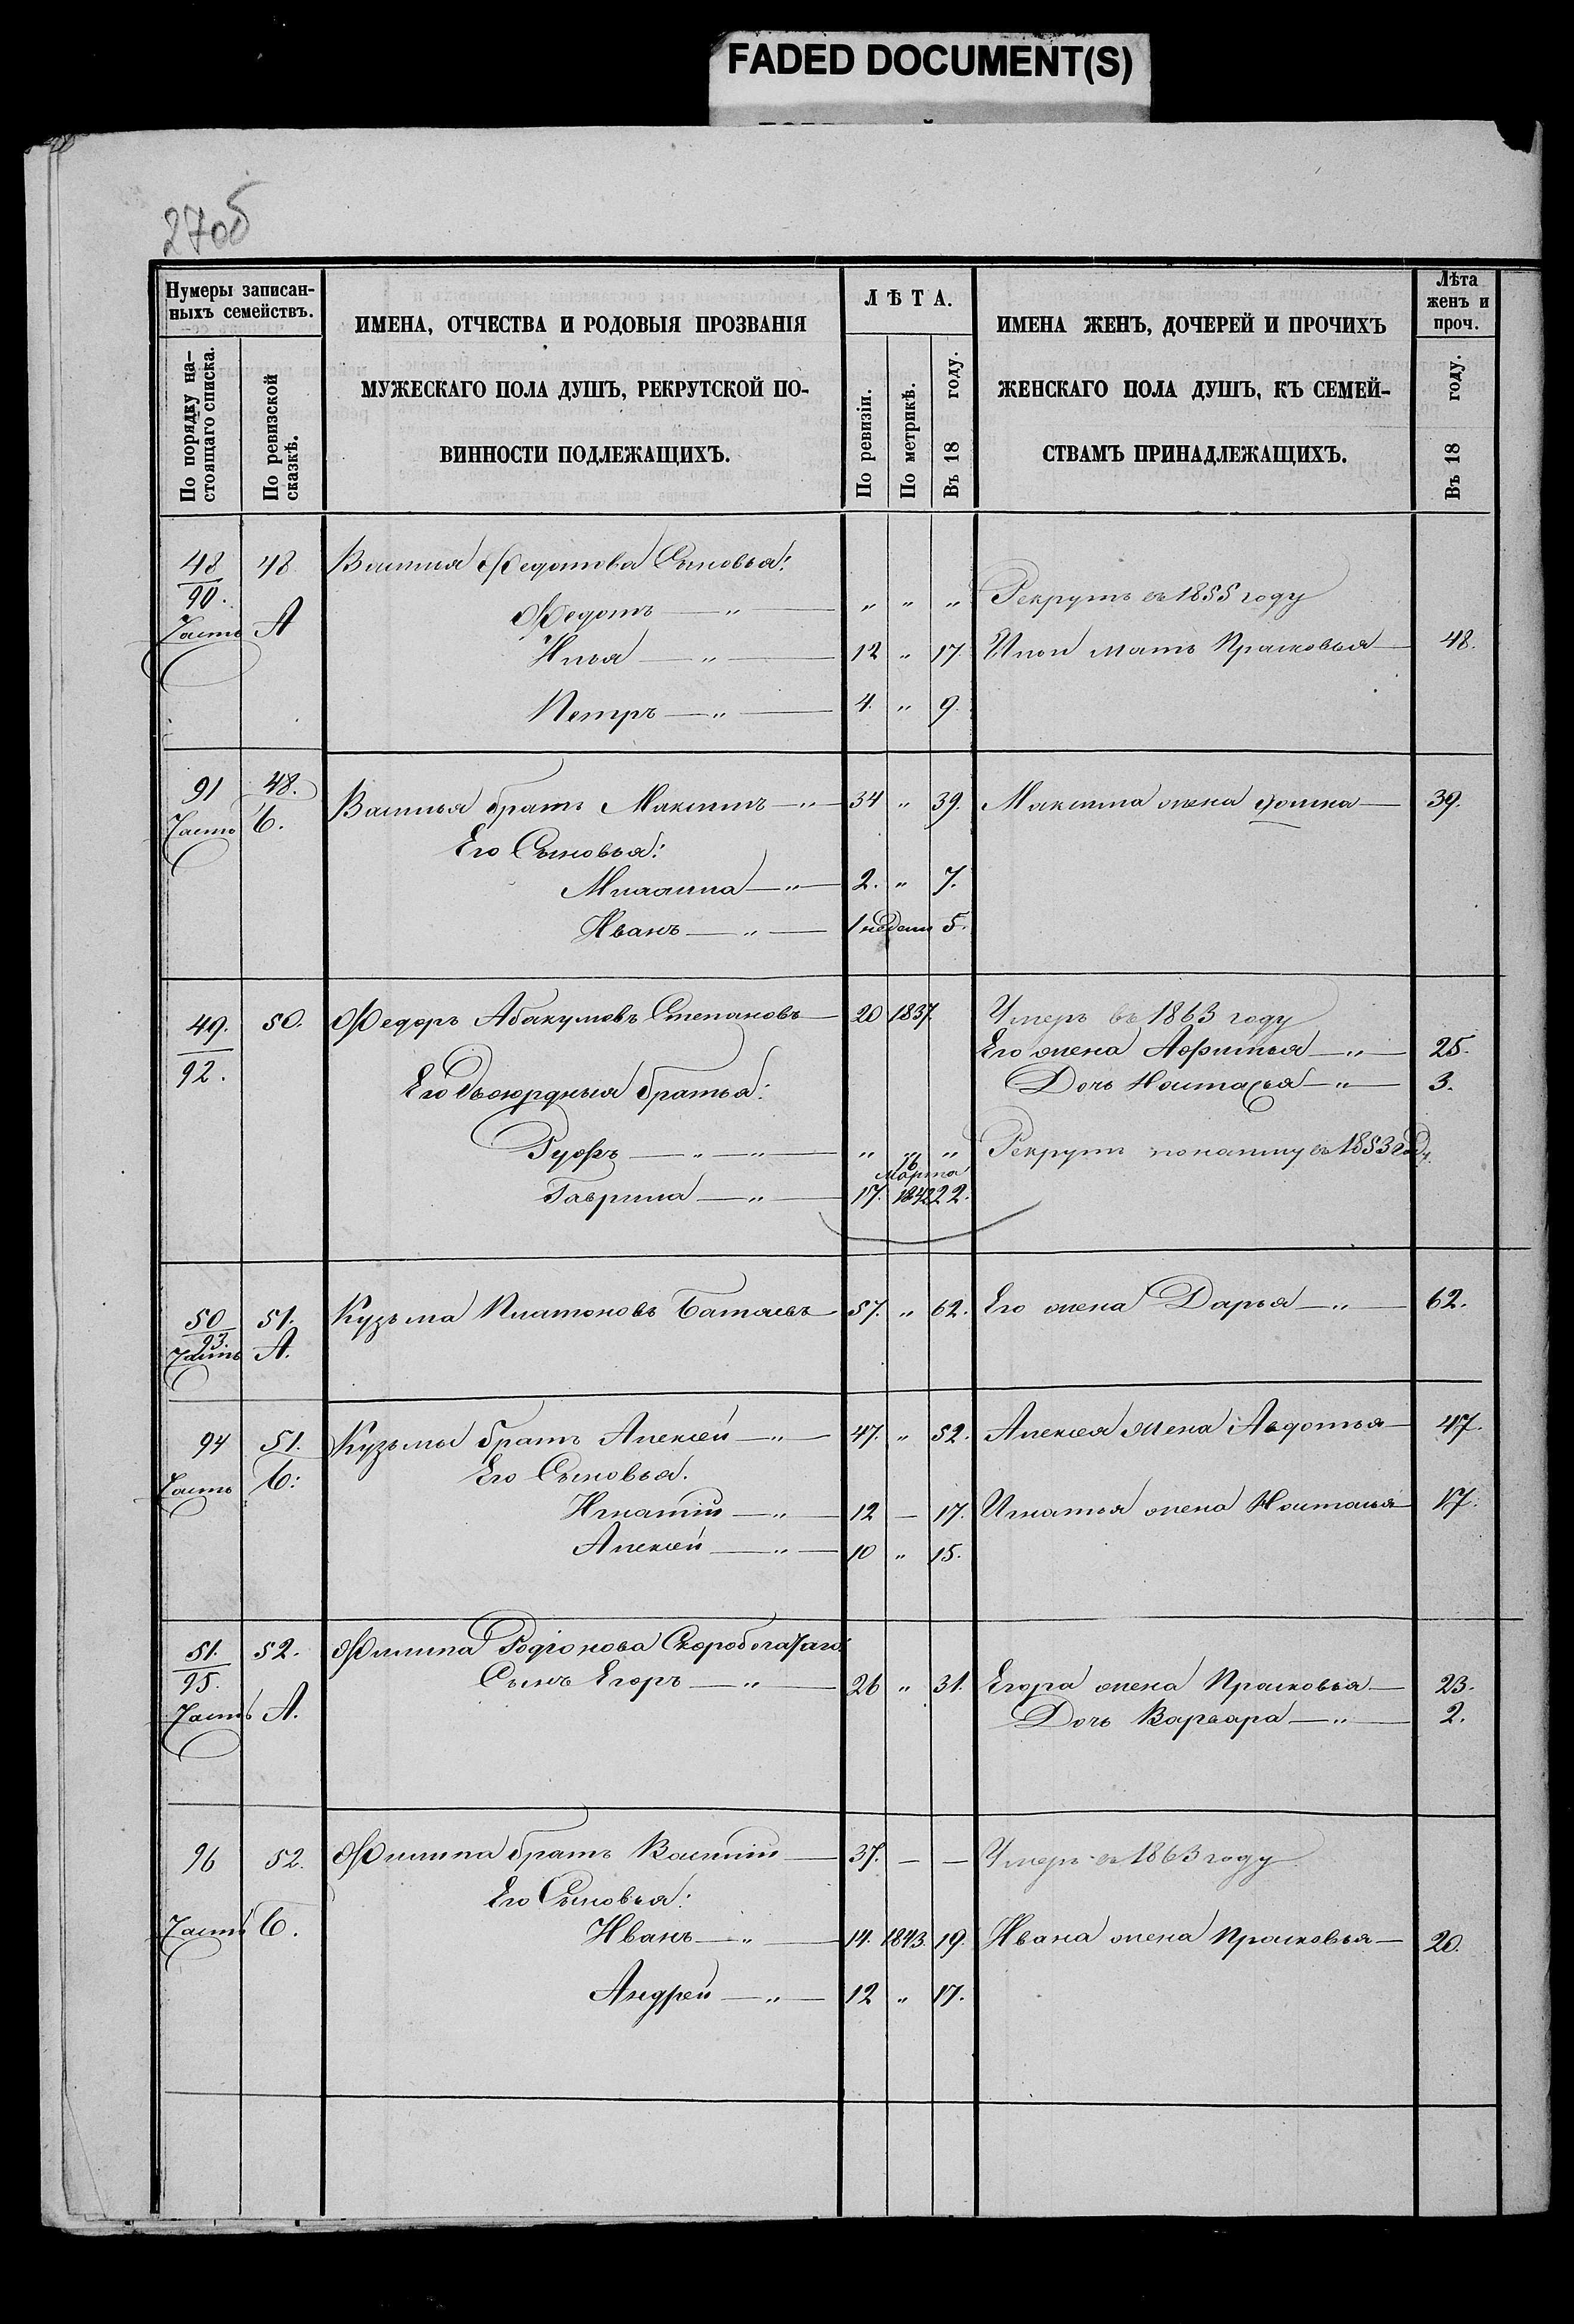 FADED DOCUMENT(S)
270б
Нумеры записан-
ныхъ семействъ.
По порядку на-
стоящаго списка.
По ревизской
сказкѣ.
ИМЕНА, ОТЧЕСТВА И РОДОВЫЯ ПРОЗВАНІЯ
МУЖЕСКАГО ПОЛА ДУШЪ, РЕКРУТСКОЙ ПО-
ВИННОСТИ ПОДЛЕЖАЩИХЪ.
ЛѢТА.
По ревизіи.
По метрикѣ.
Въ 18 году.
ИМЕНА ЖЕНЪ, ДОЧЕРЕЙ И ПРОЧИХЪ
ЖЕНСКАГО ПОЛА ДУШЪ, КЪ СЕМЕЙ-
СТВАМЪ ПРИНАДЛЕЖАЩИХЪ.
Лѣта
женъ и
проч.
Въ 18 году.
48 48 Василья Федотова Сыновья:
90. Федотъ — „ — „ „ „ Рекрутъ въ 1855 году
Часть А
Илья — „ — 12 „ 17. Ильи мать Прасковья — 48.
Петръ — „ — 4. „ 9.
91 48. Василья братъ Максимъ — „ — 34 „ 39. Максима жена Фошка — 39.
Часть Б.
Его Сыновья:
Михаила — „ — 2. „ 7.
Иванъ — „ — 1 недели 5.
49. 50. Федоръ Абакумовъ Степановъ — 20 1837. Умеръ въ 1863 году
92. Его жена Афимья — „ — 25.
Его двоюрдныя братья: Дочь Настасья — „ — 3.
Руфъ — „ — „ — „ „ „ Рекрутъ по найму въ 1853 году.
16 Марта
Гаврила — „ — 17. 1842 22.
50 51. Кузьма Платоновъ Батаевъ — 57. „ 62. Его жена Дарья — „ — 62.
93.
Часть А.
94 51. Кузьмы братъ Алексѣй — „ — 47. „ 52. Алексея жена Авдотья — 47.
Часть Б:
Его Сыновья.
Игнатій — „ — 12 — 17. Игнатья жена Настасья — 17.
Алексѣй — „ — 10 „ 15.
51. 52. Филипа Родіонова Скоробогатаго:
95. Сынъ Егоръ — „ — 26 „ 31. Егора жена Прасковья — 23.
Часть А. Дочь Варвара — „ — 2.
96 52. Филипа братъ Василій — 37. — — Умеръ въ 1863 году
Его Сыновья:
Часть Б. Иванъ — „ — 14. 1843. 19. Ивана жена Прасковья — 20.
Андрей — „ — 12 „ 17.